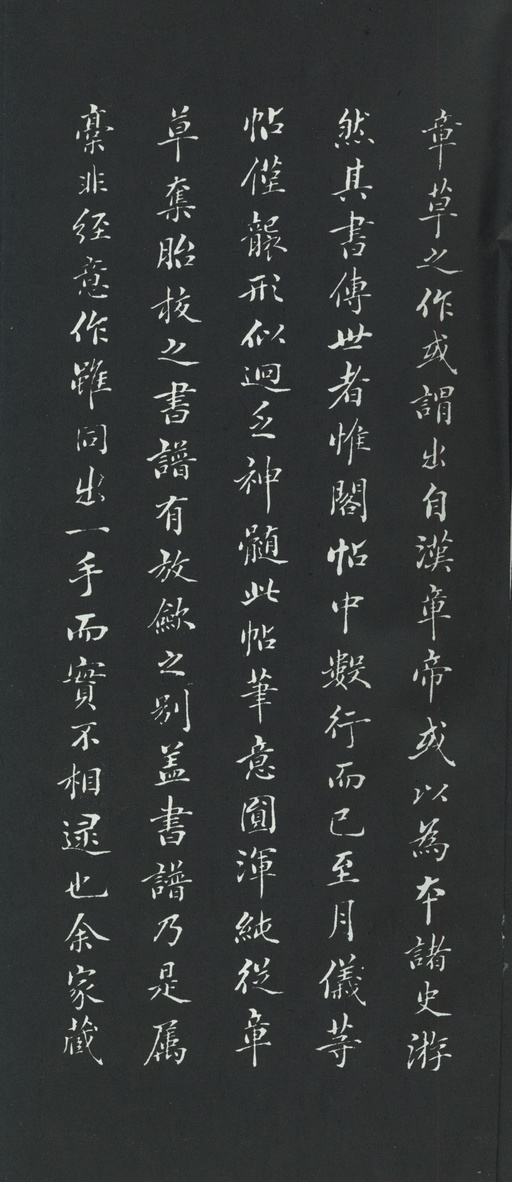 章草之作或謂出自漢章帝或以為本諸史游
然其書傳世者惟閣帖中數行而已至月儀等
帖僅具形似迥乏神髓此帖筆意圓渾純從章
草奪胎校之書譜有放歛之別盖書譜乃是属
稾非經意作雖同出一手而實不相逮也余家蔵